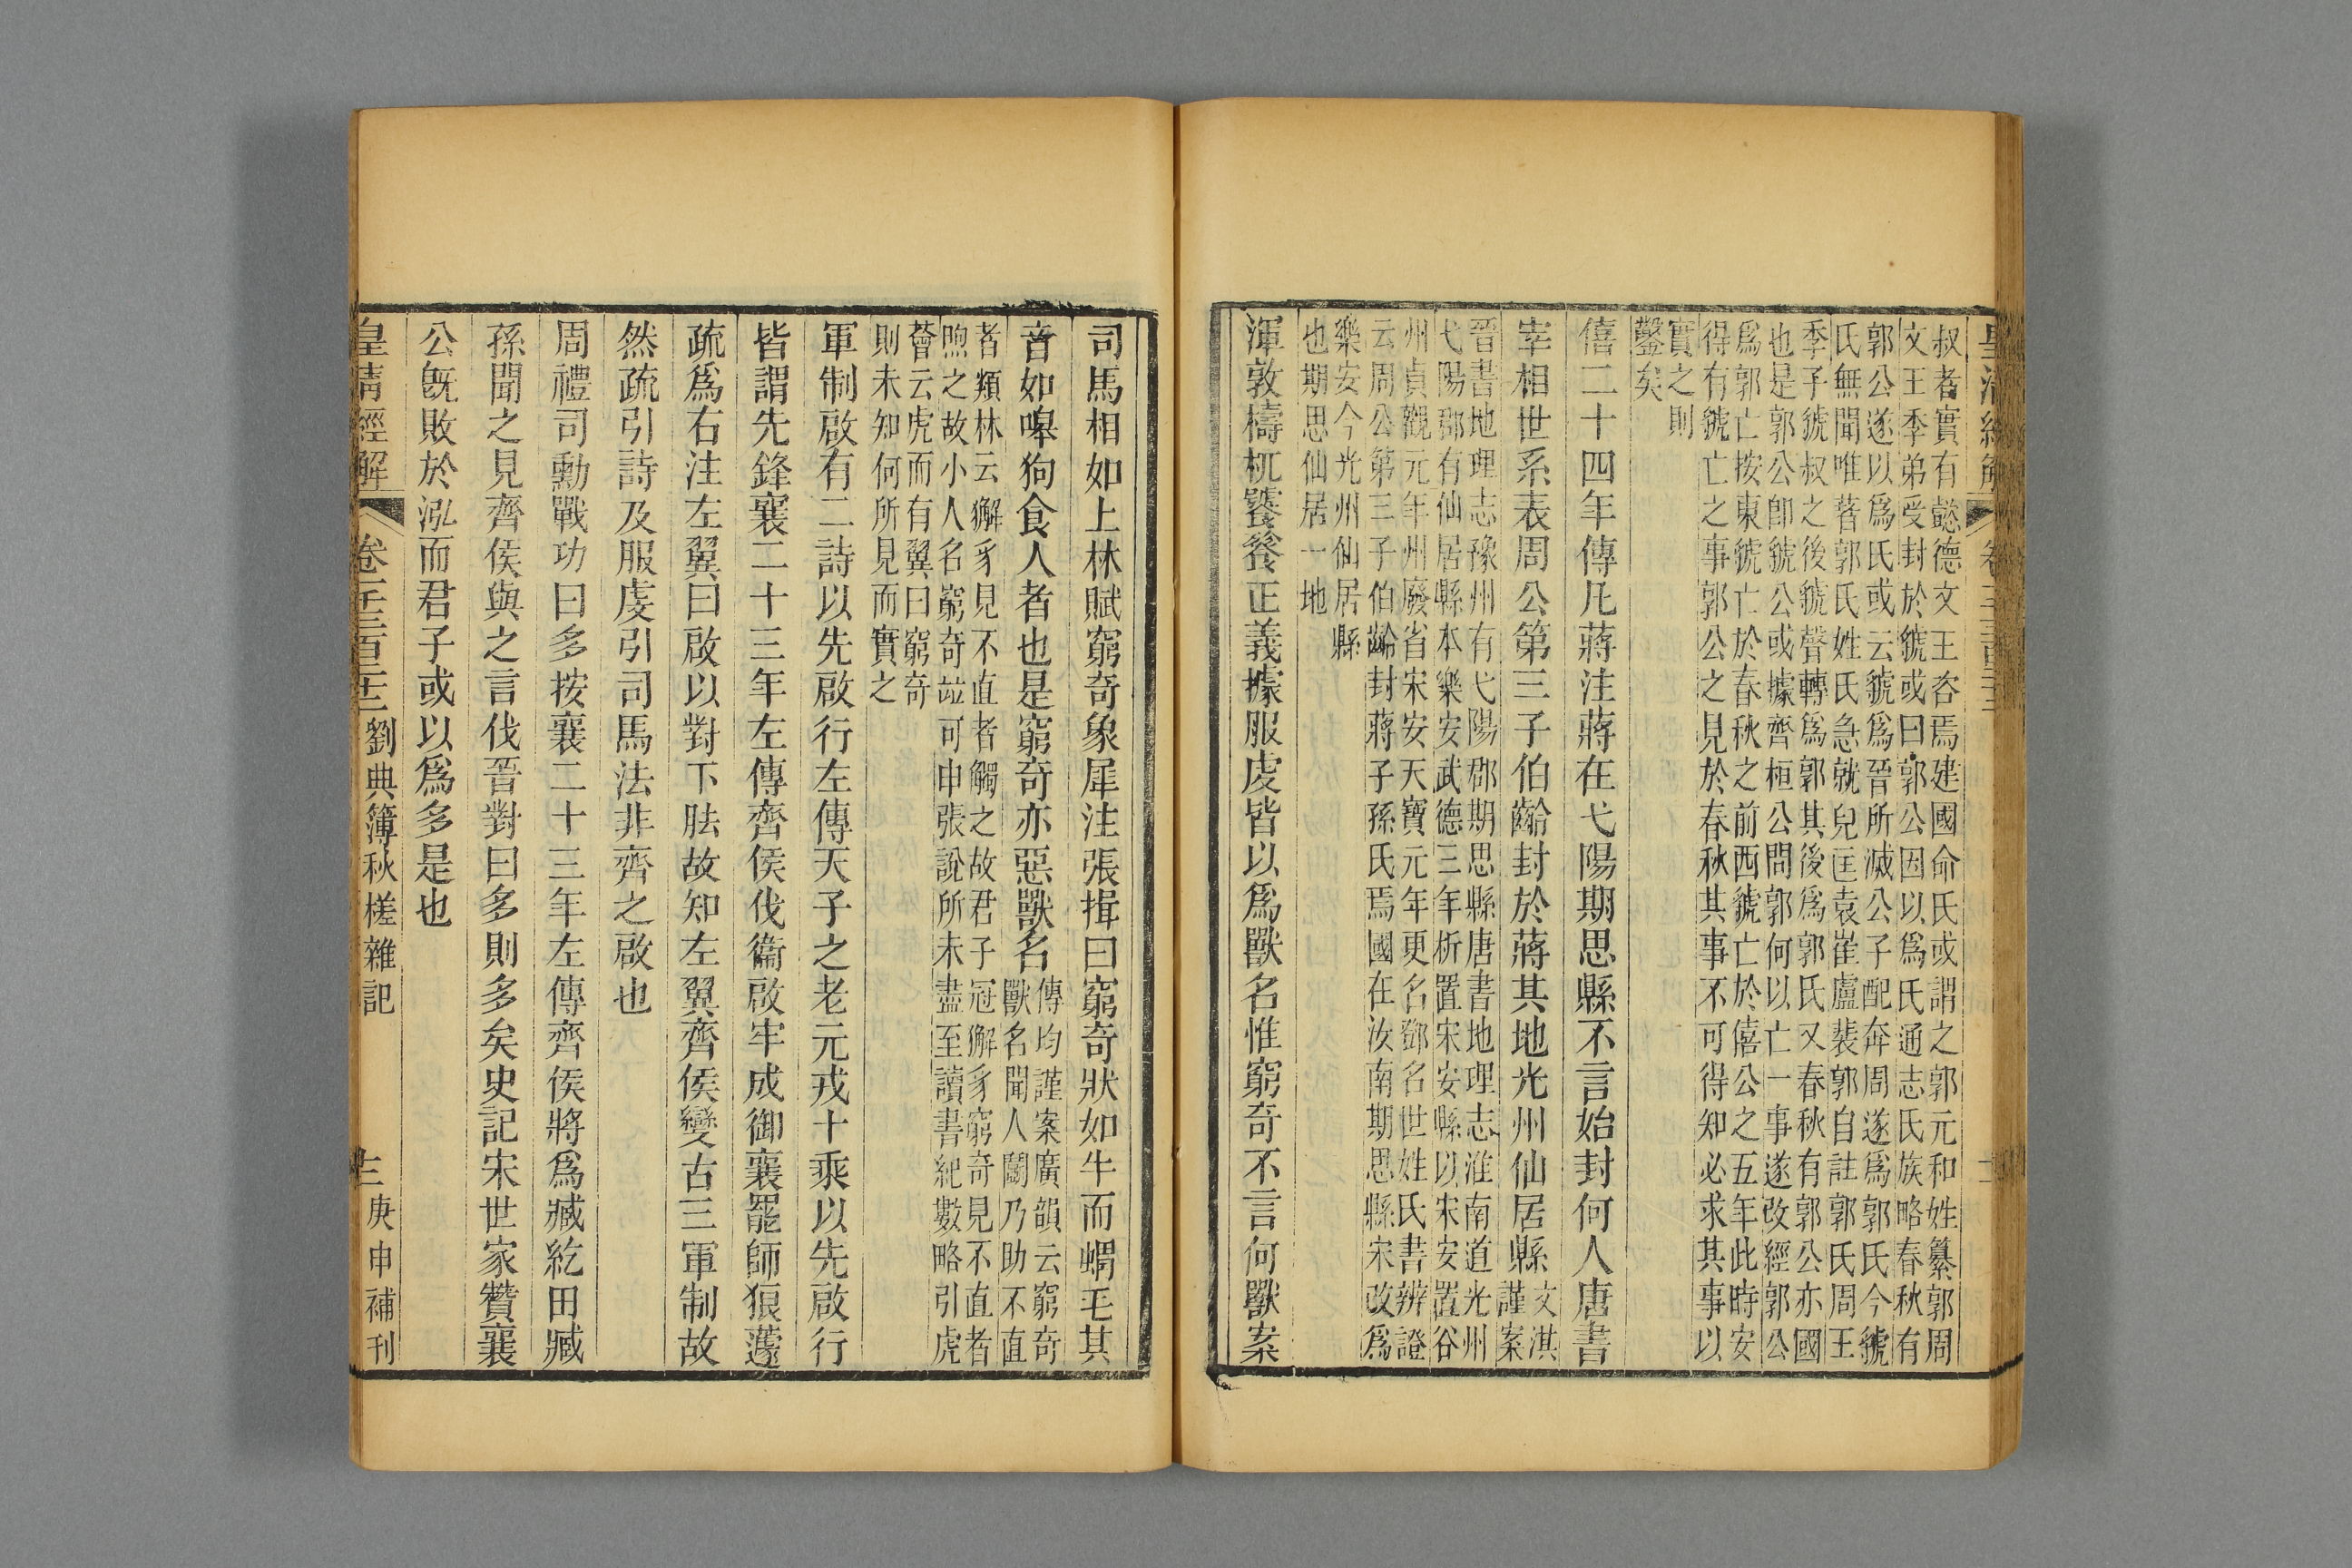 叔者實有懿德文王咨焉建國命氏或謂之郭元和姓纂郭周
文王季弟受封於虢或曰郭公因以爲氏通志氏族略春秋有
郭公遂以爲氏或云虢爲晉所滅公子配奔周遂爲郭氏今虢
氏無聞唯著郭氏姓氏急就兒匡袁崔盧裴郭自註郭氏周王
季子虢叔之後虢聲轉爲郭其後爲郭氏又春秋有郭公亦國
也是郭公卽虢公或據齊桓公問郭何以亡一事遂改經郭公
爲郭亡按東虢亡於春秋之前西虢亡於僖公之五年此時安
得有虢亡之事郭公之見於春秋其事不可得知必求其事以
實之則
鑿矣
僖二十四年傳凡蔣注蔣在弋陽期思縣不言始封何人唐書
宰相世系表周公第三子伯齡封於蔣其地光州仙居縣文淇
謹案
晉書地理志豫州有弋陽郡期思縣唐書地理志淮南道光州
弋陽郡有仙居縣本樂安武德三年析置宋安縣以宋安置谷
州貞觀元年州廢省宋安天寶元年更名鄧名世姓氏書辨證
云周公第三子伯齡封蔣子孫氏焉國在汝南期思縣宋改爲
樂安今光州仙居縣
也期思仙居一地
渾敦檮杌饕餮正義據服虔皆以爲獸名惟窮奇不言何獸案
司馬相如上林賦窮奇象犀注張揖曰窮奇狀如牛而蝟毛其
音如嗥狗食人者也是窮奇亦惡獸名傳均謹案廣韻云窮奇
獸名聞人鬭乃助不直
者類林云獬豸見不直者觸之故君子冠獬豸窮奇見不直者
煦之故小人名窮奇竝可申張說所未盡至讀書紀數略引虎
薈云虎而有翼曰窮奇
則未知何所見而實之
軍制啟有二詩以先啟行左傳天子之老元戎十乘以先啟行
皆謂先鋒襄二十三年左傳齊侯伐衞啟牢成御襄罷師狼蘧
疏爲右注左翼曰啟以對下胠故知左翼齊侯變古三軍制故
然疏引詩及服虔引司馬法非齊之啟也
周禮司勳戰功曰多按襄二十三年左傳齊侯將爲臧紇田臧
孫聞之見齊侯與之言伐晉對曰多則多矣史記宋世家贊襄
公旣敗於泓而君子或以爲多是也
皇淸經解 卷 劉典簿秋槎雜記 三 庚申補刊